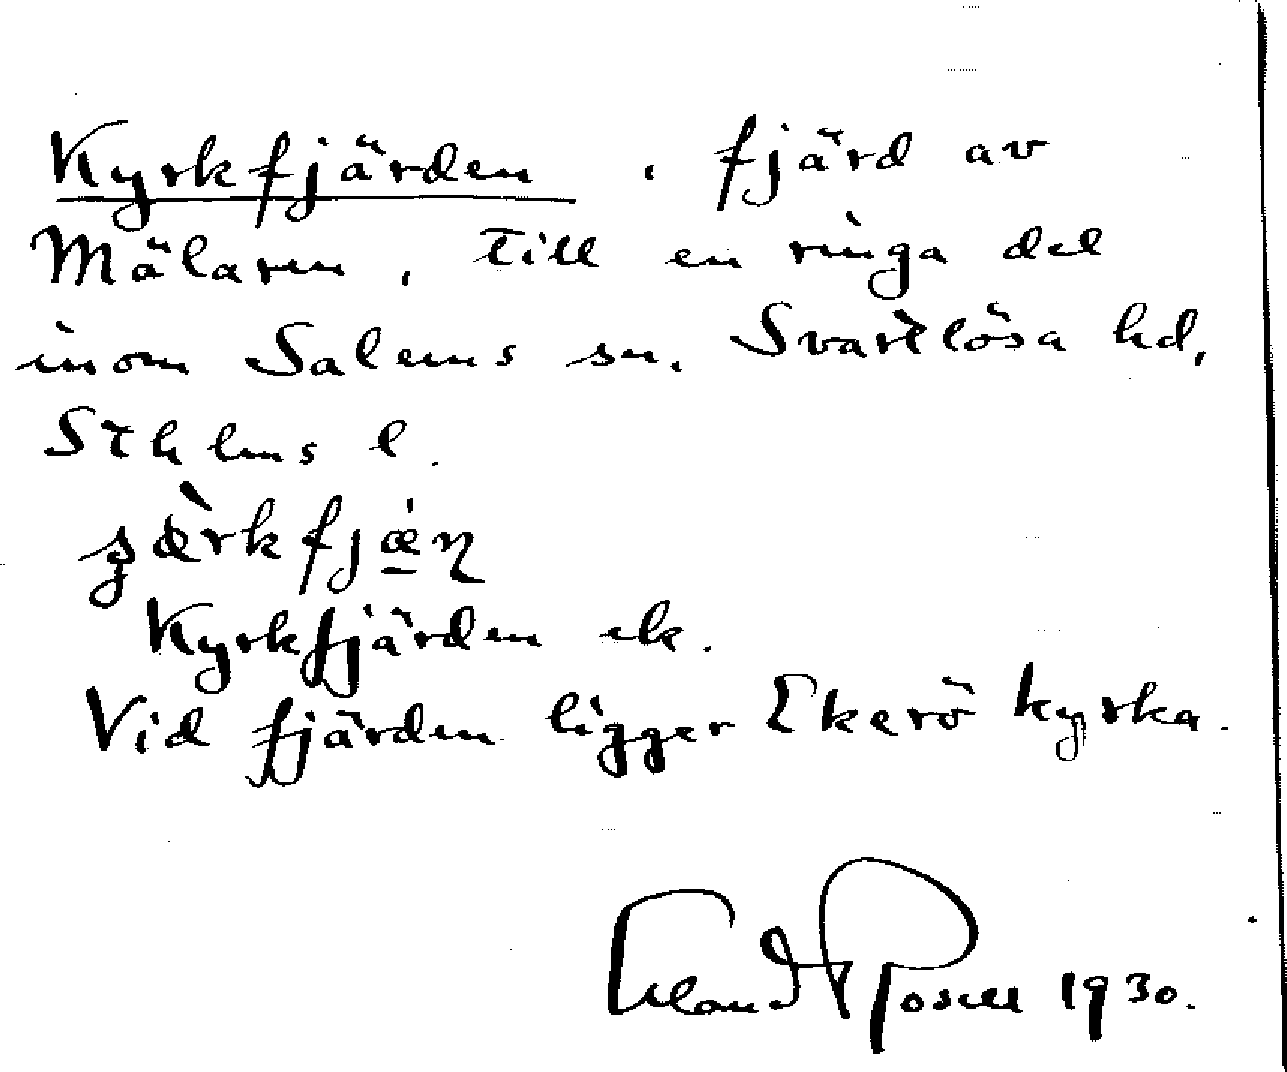 Kyrkfjärden, fjärd av
Mälaren, till en ringa del
inom Salems sn, Svartlösa hd,
Sthlms l.
Kyrkfjärden ek.
Vid fjärden ligger Ekerö kyrka.
Erland Rosell 1930.